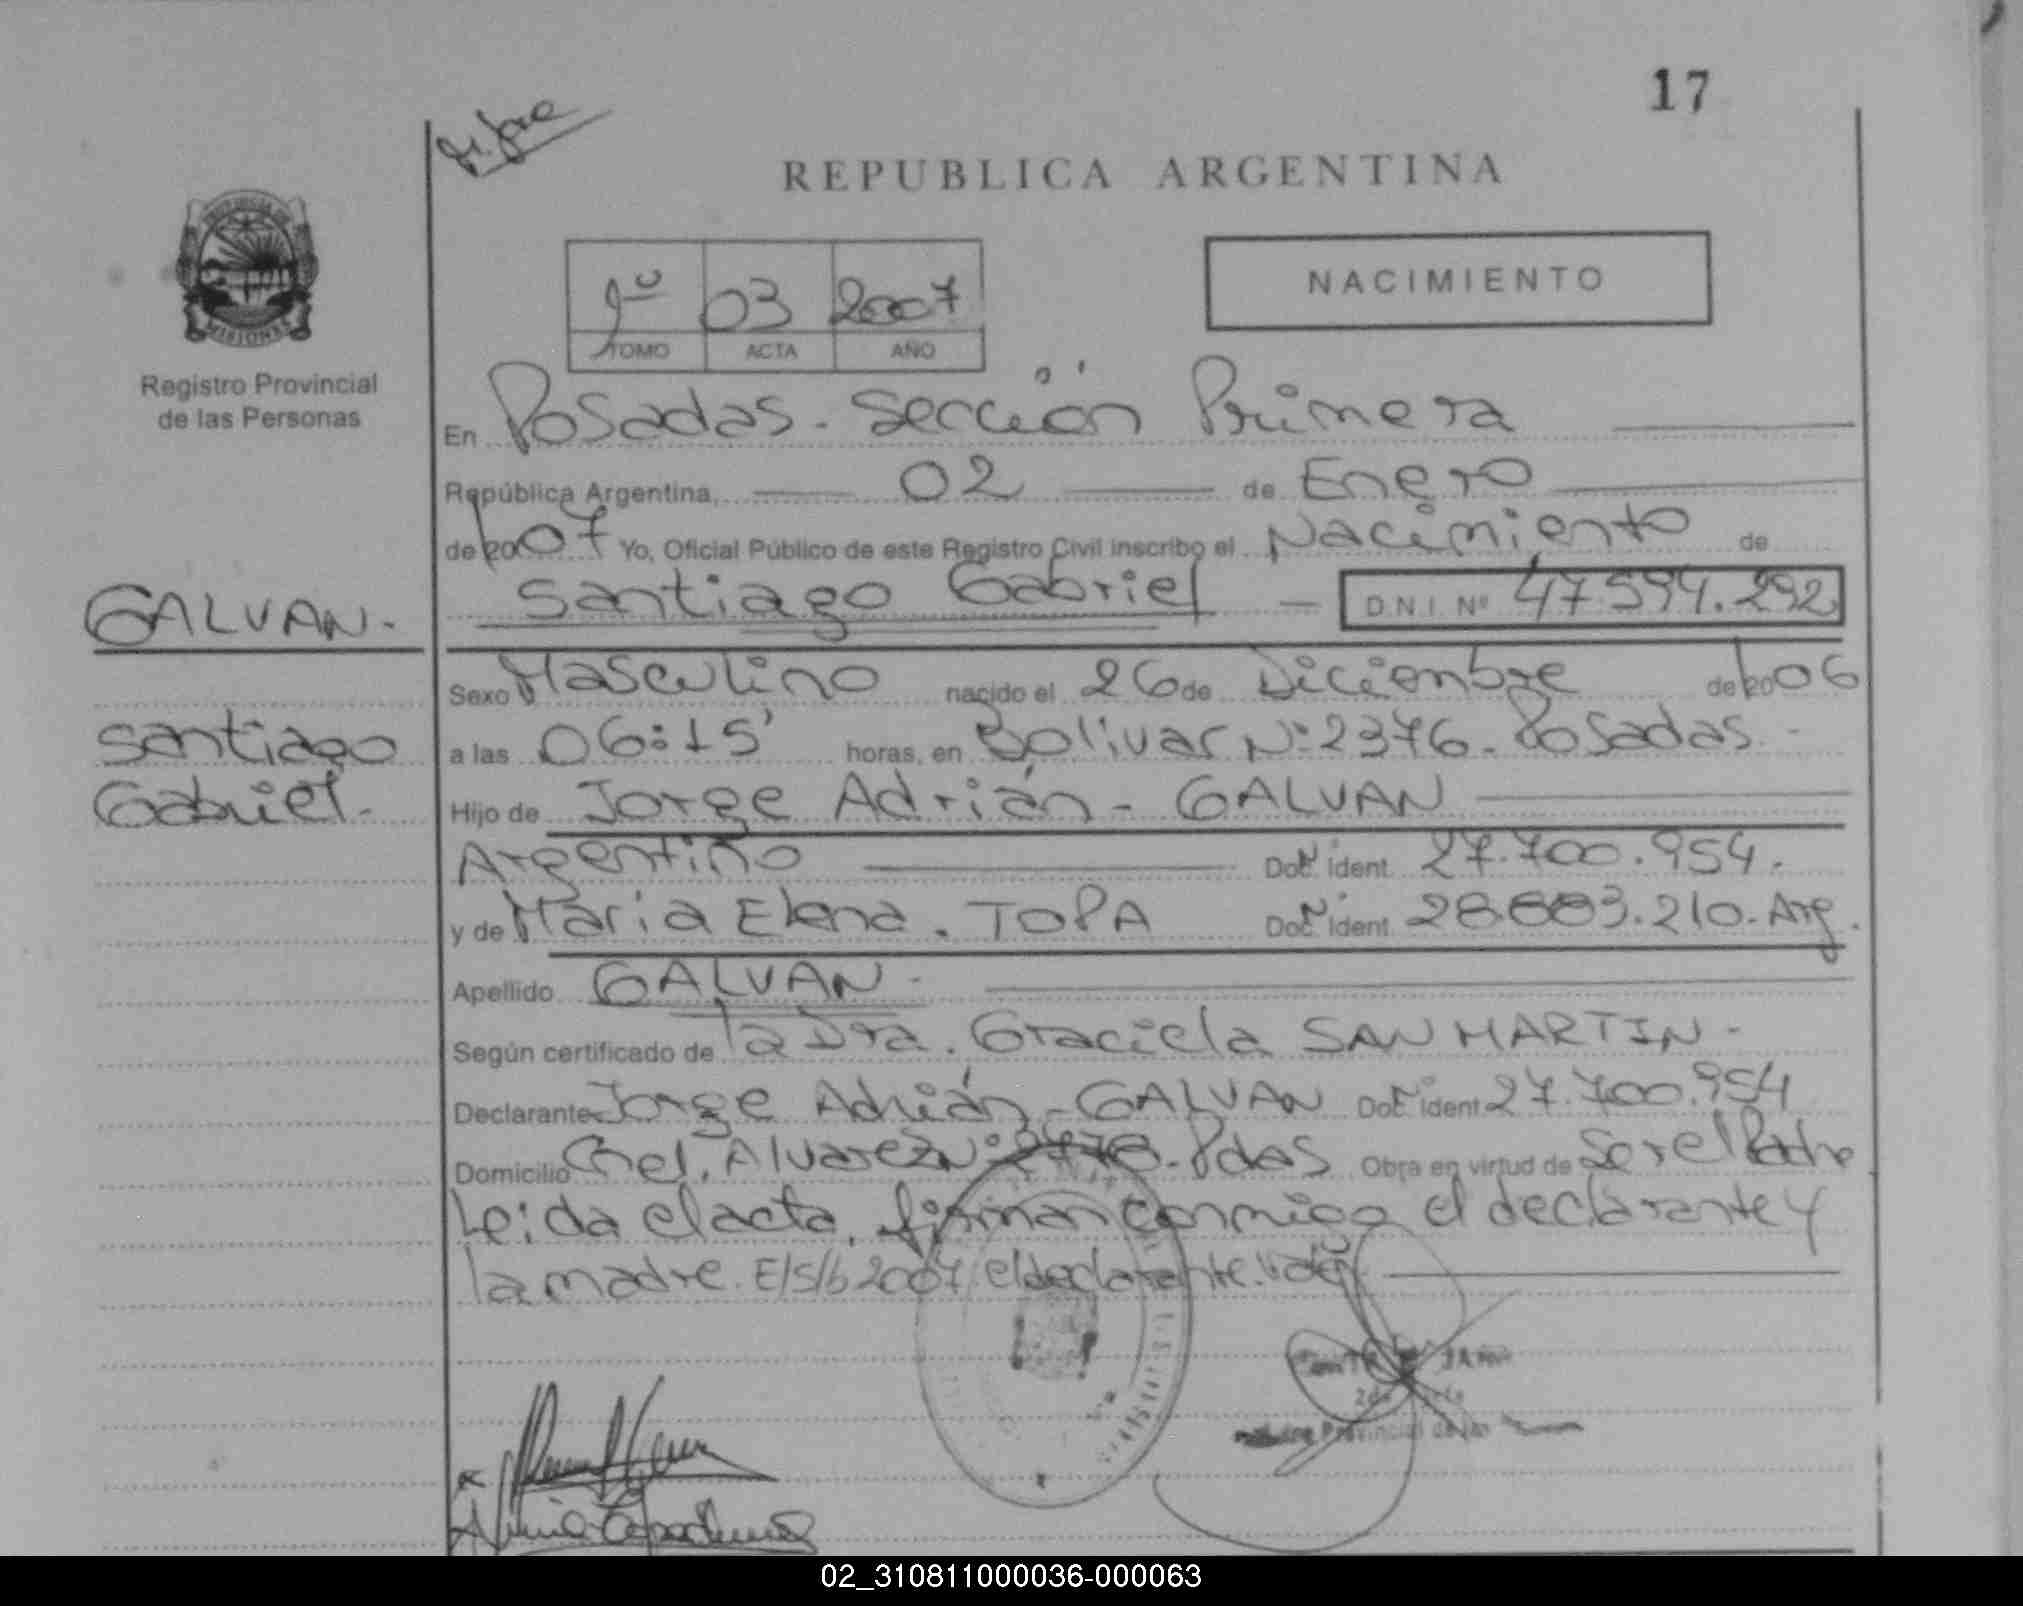 17
REPUBLICA ARGENTINA
MISIONES
Registro Provincial
de las Personas
1º 03 2007
TOMO ACTA AÑO
NACIMIENTO
En Posadas. Sección Primera
República Argentina, 02 de Enero
de 2007 Yo, Oficial Público de este Registro Civil inscribo el Nacimiento de
Santiago Gabriel D.N.I. Nº 47.594.292
GALVAN.
Santiago
Gabriel.
Sexo Masculino nacido el 26 de Diciembre de 2006
a las 06:15' horas, en Bolivar Nº 2376. Posadas.
Hijo de Jorge Adrián - GALVAN
Argentino Doc. Ident. 27.700.954.
y de Maria Elena. TOPA Doc. Ident. 28.883.210. Arg.
Apellido GALVAN.
Según certificado de la Dra. Graciela SAN MARTIN.
Declarante Jorge Adrián - GALVAN Doc. Ident. 27.700.954
Domicilio Cnel. Alvarez Nº Pdas Obra en virtud de Ser el Padre
Leida el acta, firman conmigo el declarante y
la madre. E/S/b 2007. el declarante. Vale
Provincial de las
02_310811000036-000063